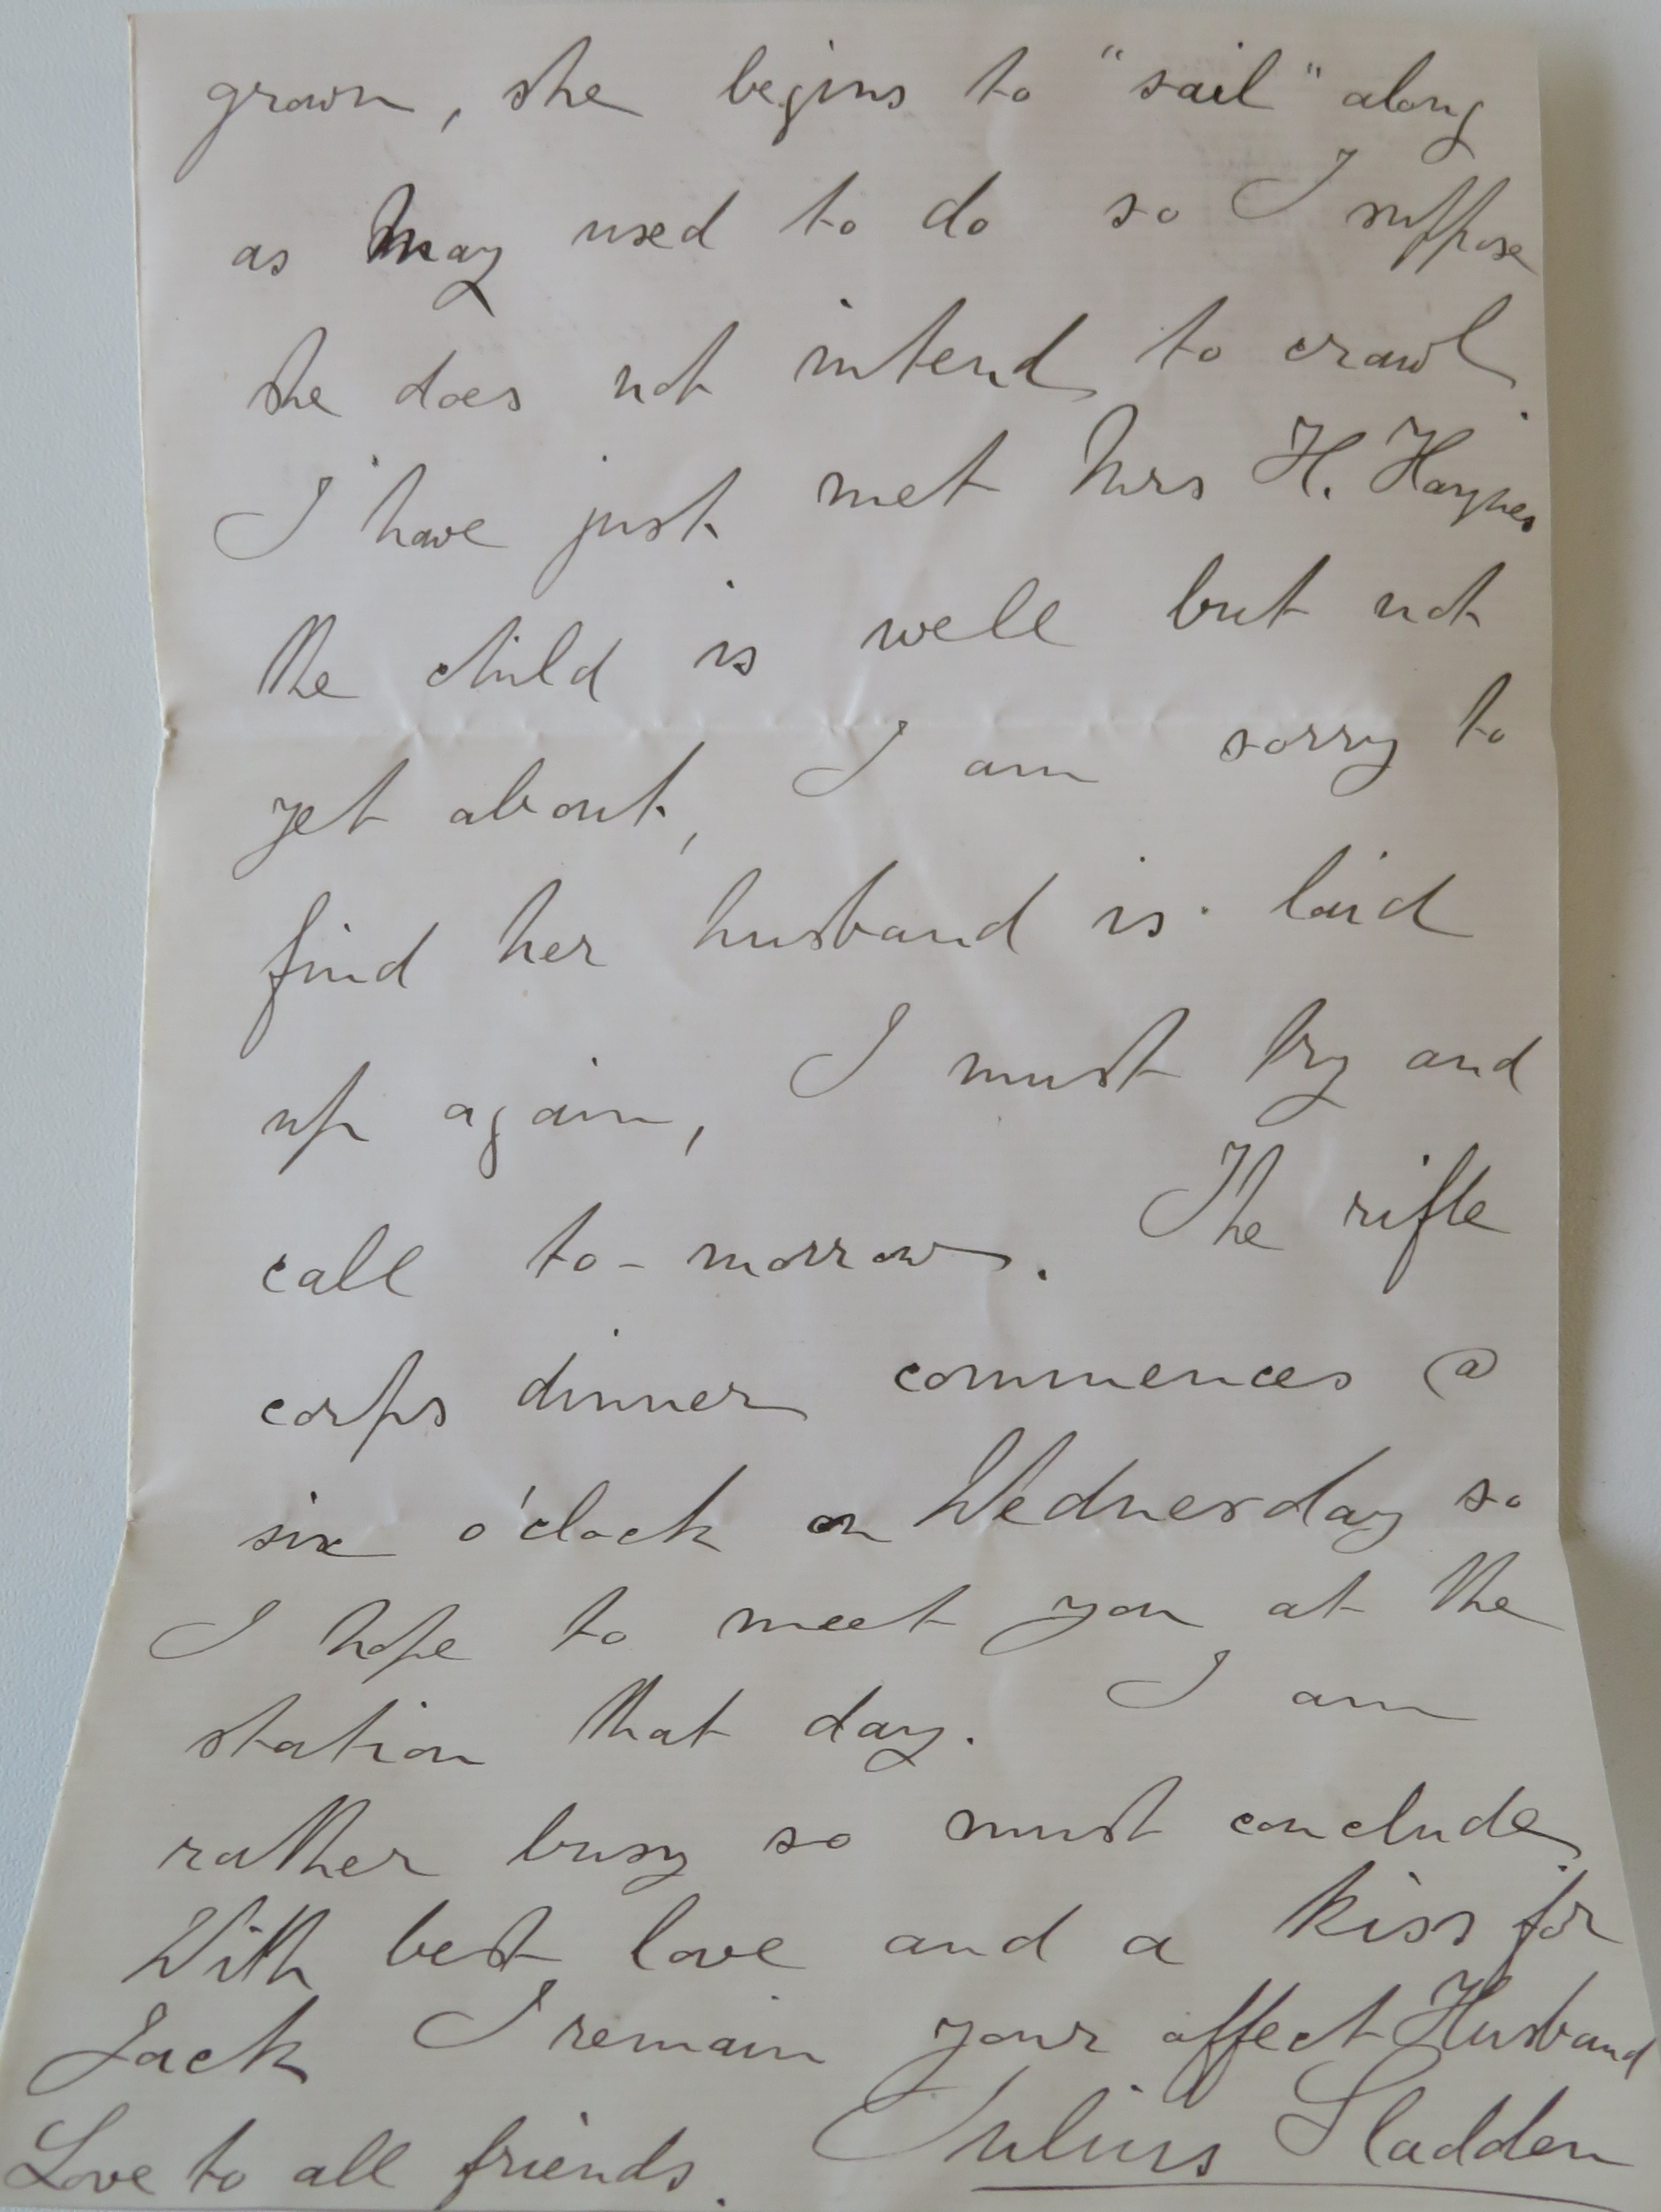 grown, she begins to "sail" along
as May used to do so I suppose
she does not intend to crawl.
I have just met Mrs H. Haynes
the child is well but not
yet about, I am sorry to
find her husband is laid
up again, I must try and
call to-morrow. The rifle
corps dinner commences @
six o'clock on Wednesday so
I hope to meet you at the
station that day. I am
rather busy so must conclude.
With best love and a kiss for
Jack I remain your affect Husband
Love to all friends. Julius Sladden